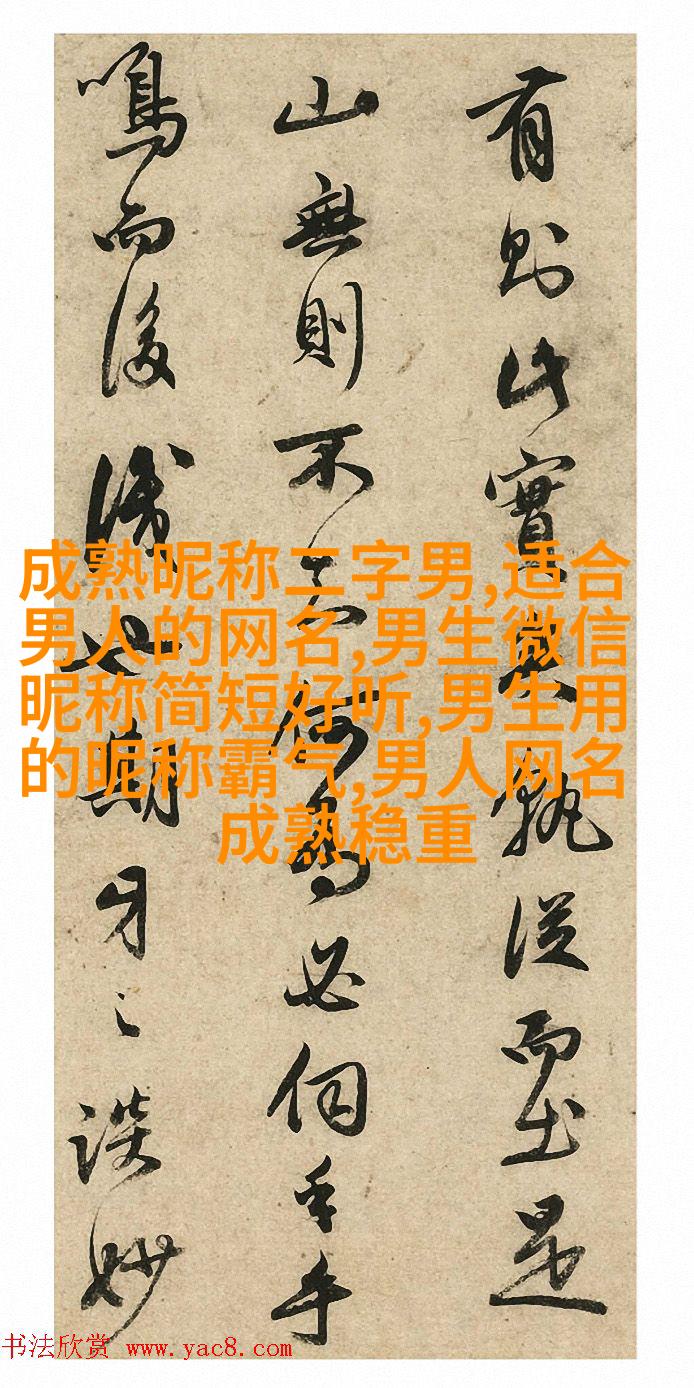 有則此實聚孰從而出是
山無則不言何為必伺手乎
鳴而後識也期牙之談妙
成熟昵称二字男,适合
男人的网名,男生微信
昵称简短好听,男生用
的昵称霸气,男人网名
成熟稳重
书法欣赏 www.yac8.com